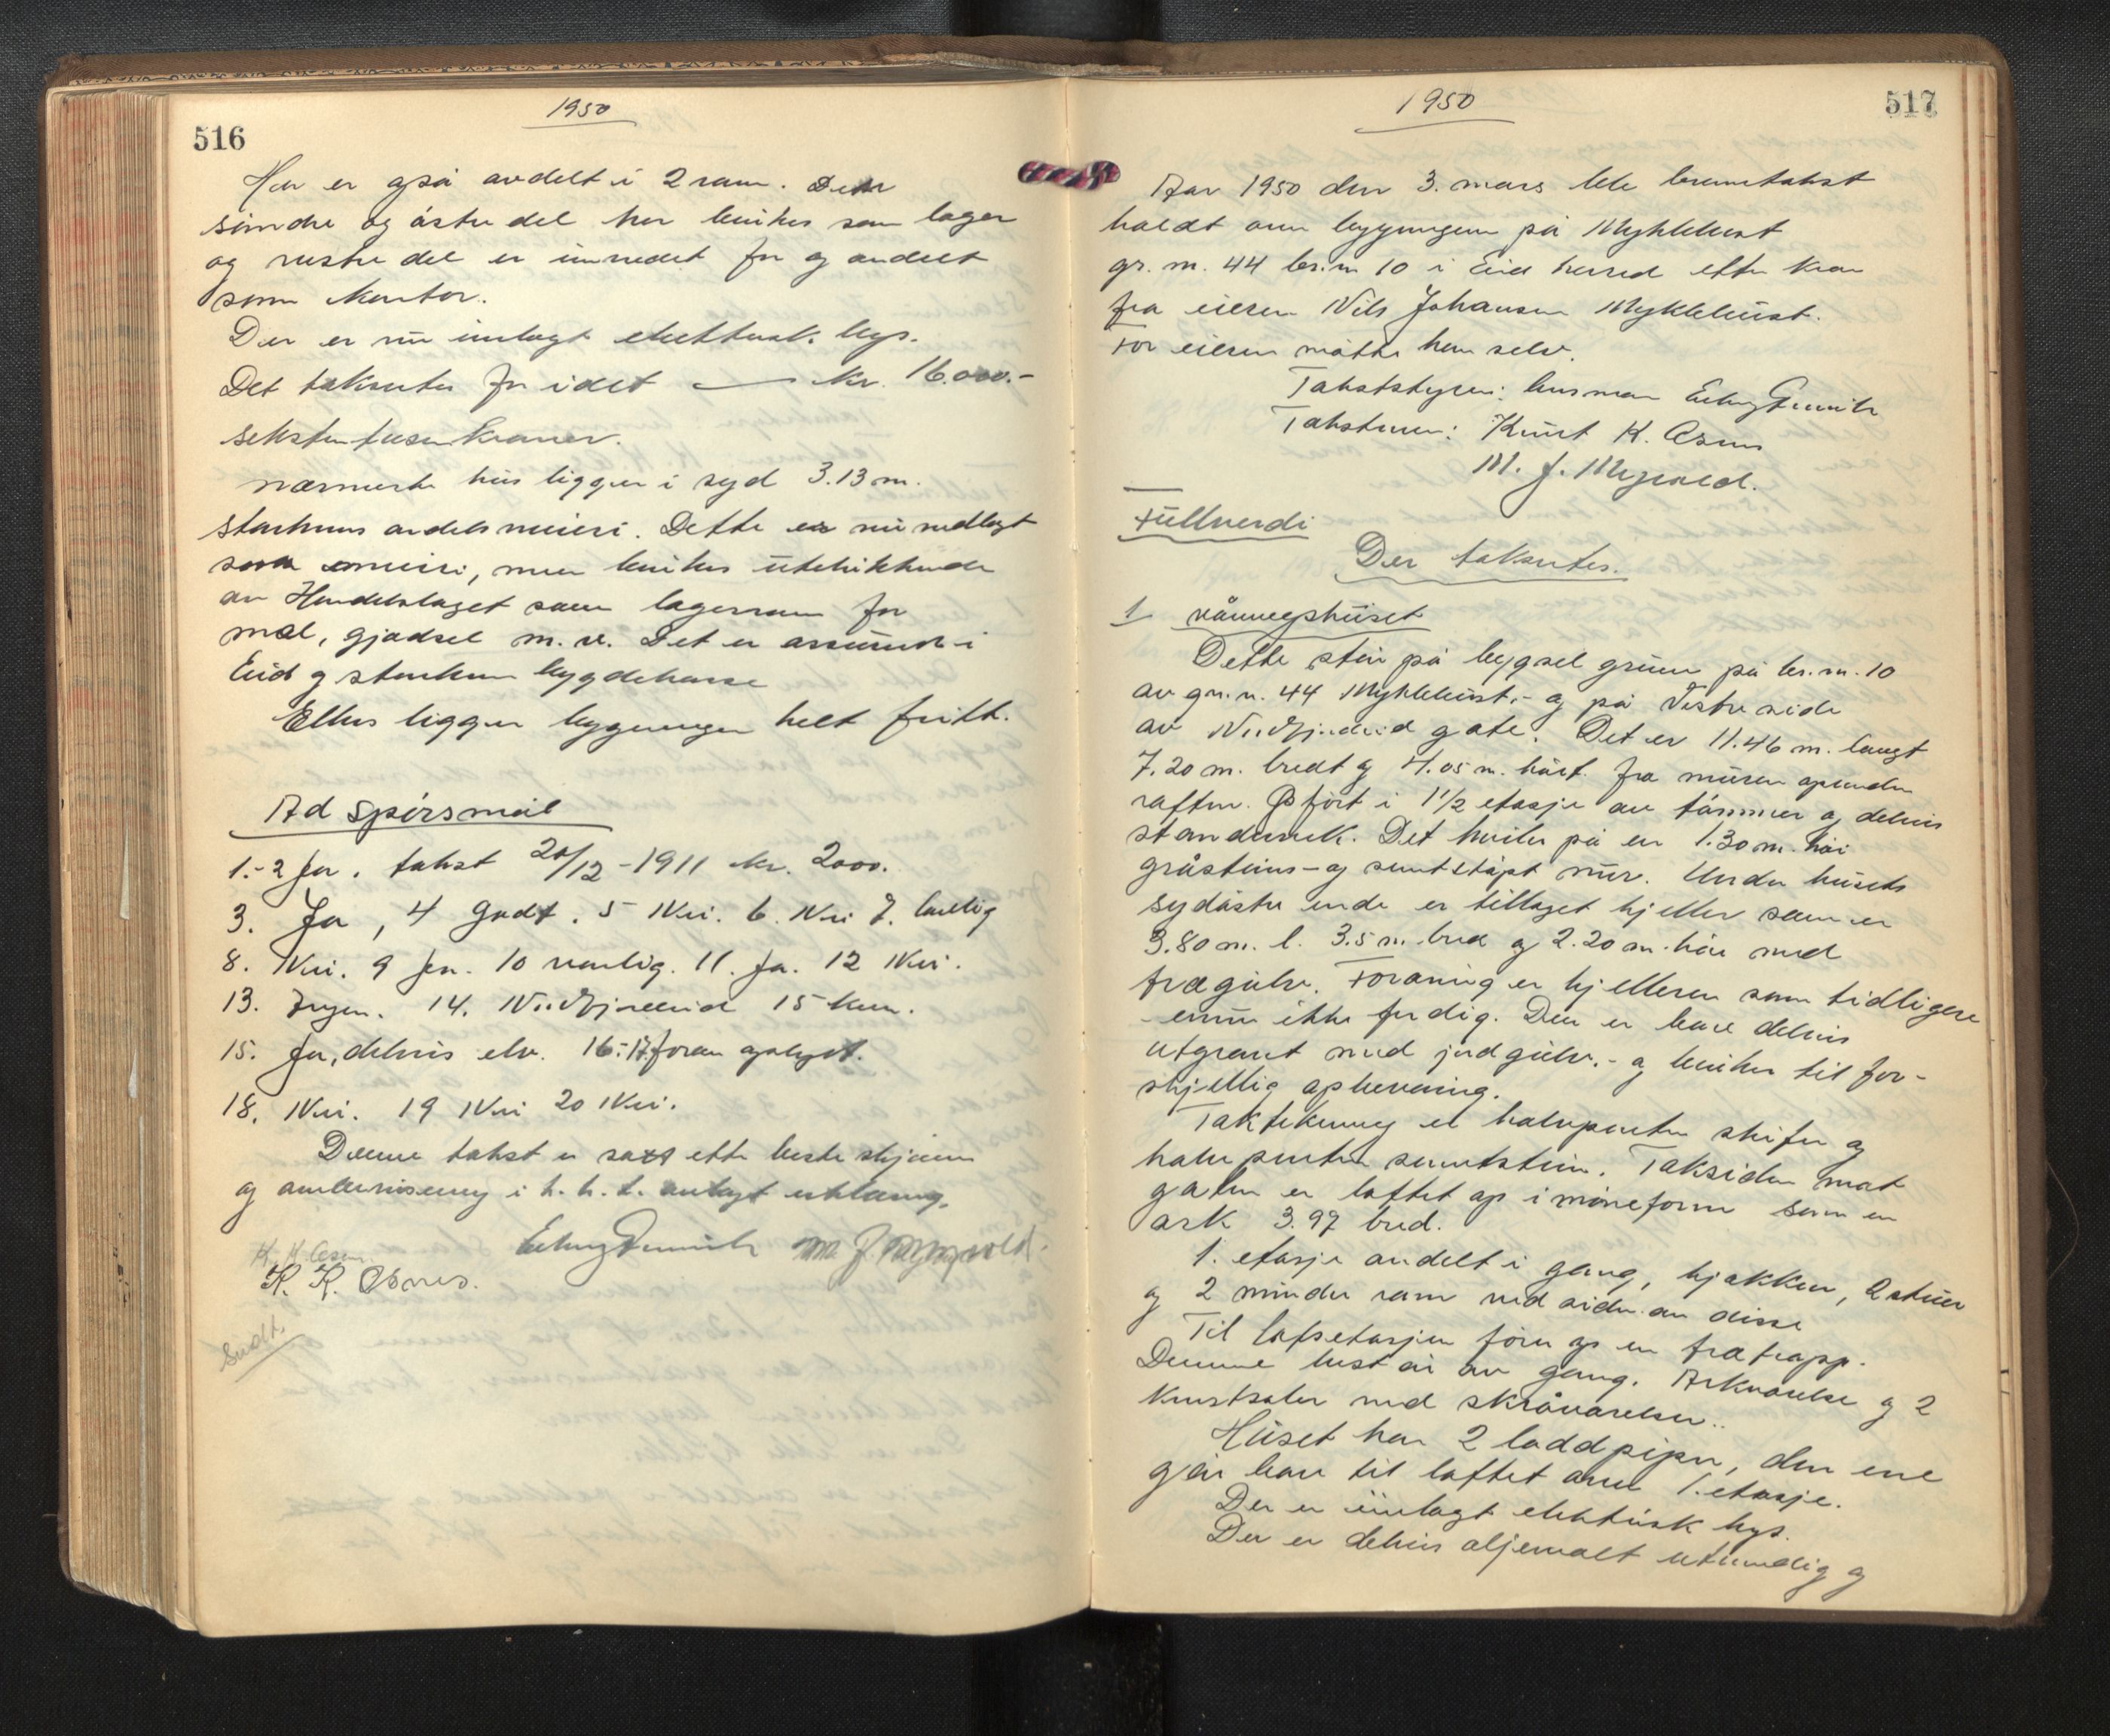 516
1950
Her er også avdelt i 2 rum. Den
søndre og østre del her brukes som lager
og vestre del er innredet for og avdelt
som kontor.
Der er nu innlagt elektrisk lys.
Det takseres for idet — kr. 16.000.-
seksten tusen kroner.
nærmeste hus ligger i syd 3.13 m.
Starheim andelsmeieri. Dette er nu nedlagt
som meieri, men brukes utelukkende
av Handelslaget som lagerrum for
mel, gjødsel m.v. Det er assurert i
Eid og Starheim bygdekasse
Ellers ligger bygningen helt fritt.
Ad spørsmål
1.-2 Ja. takst 20/12-1911 kr. 2000.
3. Ja, 4 Godt. 5 Nei. 6. Nei 7.
8. Nei. 9 Jen. 10 vanlig. 11. Ja. 12 Nei.
13. Ingen. 14. Nordfjordeid 15 km.
15. Ja, delvis elv. 16.-17. foran oplyst.
18. Nei. 19 Nei 20 Nei.
Denne takst er satt efter beste skjønn
og overbevisning i h. h. t. avlagt erklæring.
K. K. Osnes. M. J. Myrvold.
K. K. Osnes.
Sendt.
517
1950
Aar 1950 den 3. mars ble branntakst
holdt over bygningen på Myklebust
gr. nr. 44 br. nr 10 i Eid herred efter krav
fra eieren Nils Johansen Myklebust.
For eieren møtte han selv.
Takststyrer: lensmann
Takstmenn: Knut K. Osnes
M. J. Myrvold.
Fullverdi
Der takseres.
1 våningshuset
Dette står på bygsel grunn på br. nr. 10
av gr. n. 44 Myklebust.- og på Vestre side
av Nordfjordeid gate. Det er 11.46 m. langt
7.20 m. bredt og 4.05 m. høit fra muren op under
raften. Opført i 1 1/2 etasje av tømmer og delvis
standverk. Det hviler på en 1.30 m. høi
gråsteins- og sementstøpt mur. Under husets
sydøstre ende er tillaget kjeller som er
3.80 m. l. 3.5 m. bred og 2.20 m. høi med
tregulv. Forøvrig er kjelleren som tidligere
- ennu ikke ferdig. Den er bare delvis
utgravt med jordgulv.- og brukes til for-
skjellig opbevaring.
Taktekning er halvparten skifer og
halvparten sementstein. Taksiden mot
gaten er løftet op i møneform som en
ark 3.97 bred.
1. etasje avdelt i gang, kjøkken, 2 stuer
og 2 mindre rum ved siden av disse
Til loftsetasjen fører op en tretrapp.
Denne består av gang. Arkværelse og 2
kvistsaler med skråværelser..
Huset har 2 loddpiper, den ene
går bare til loftet over 1. etasje.
Der er innlagt elektrisk lys.
Der er delvis oljemalt utvendig og